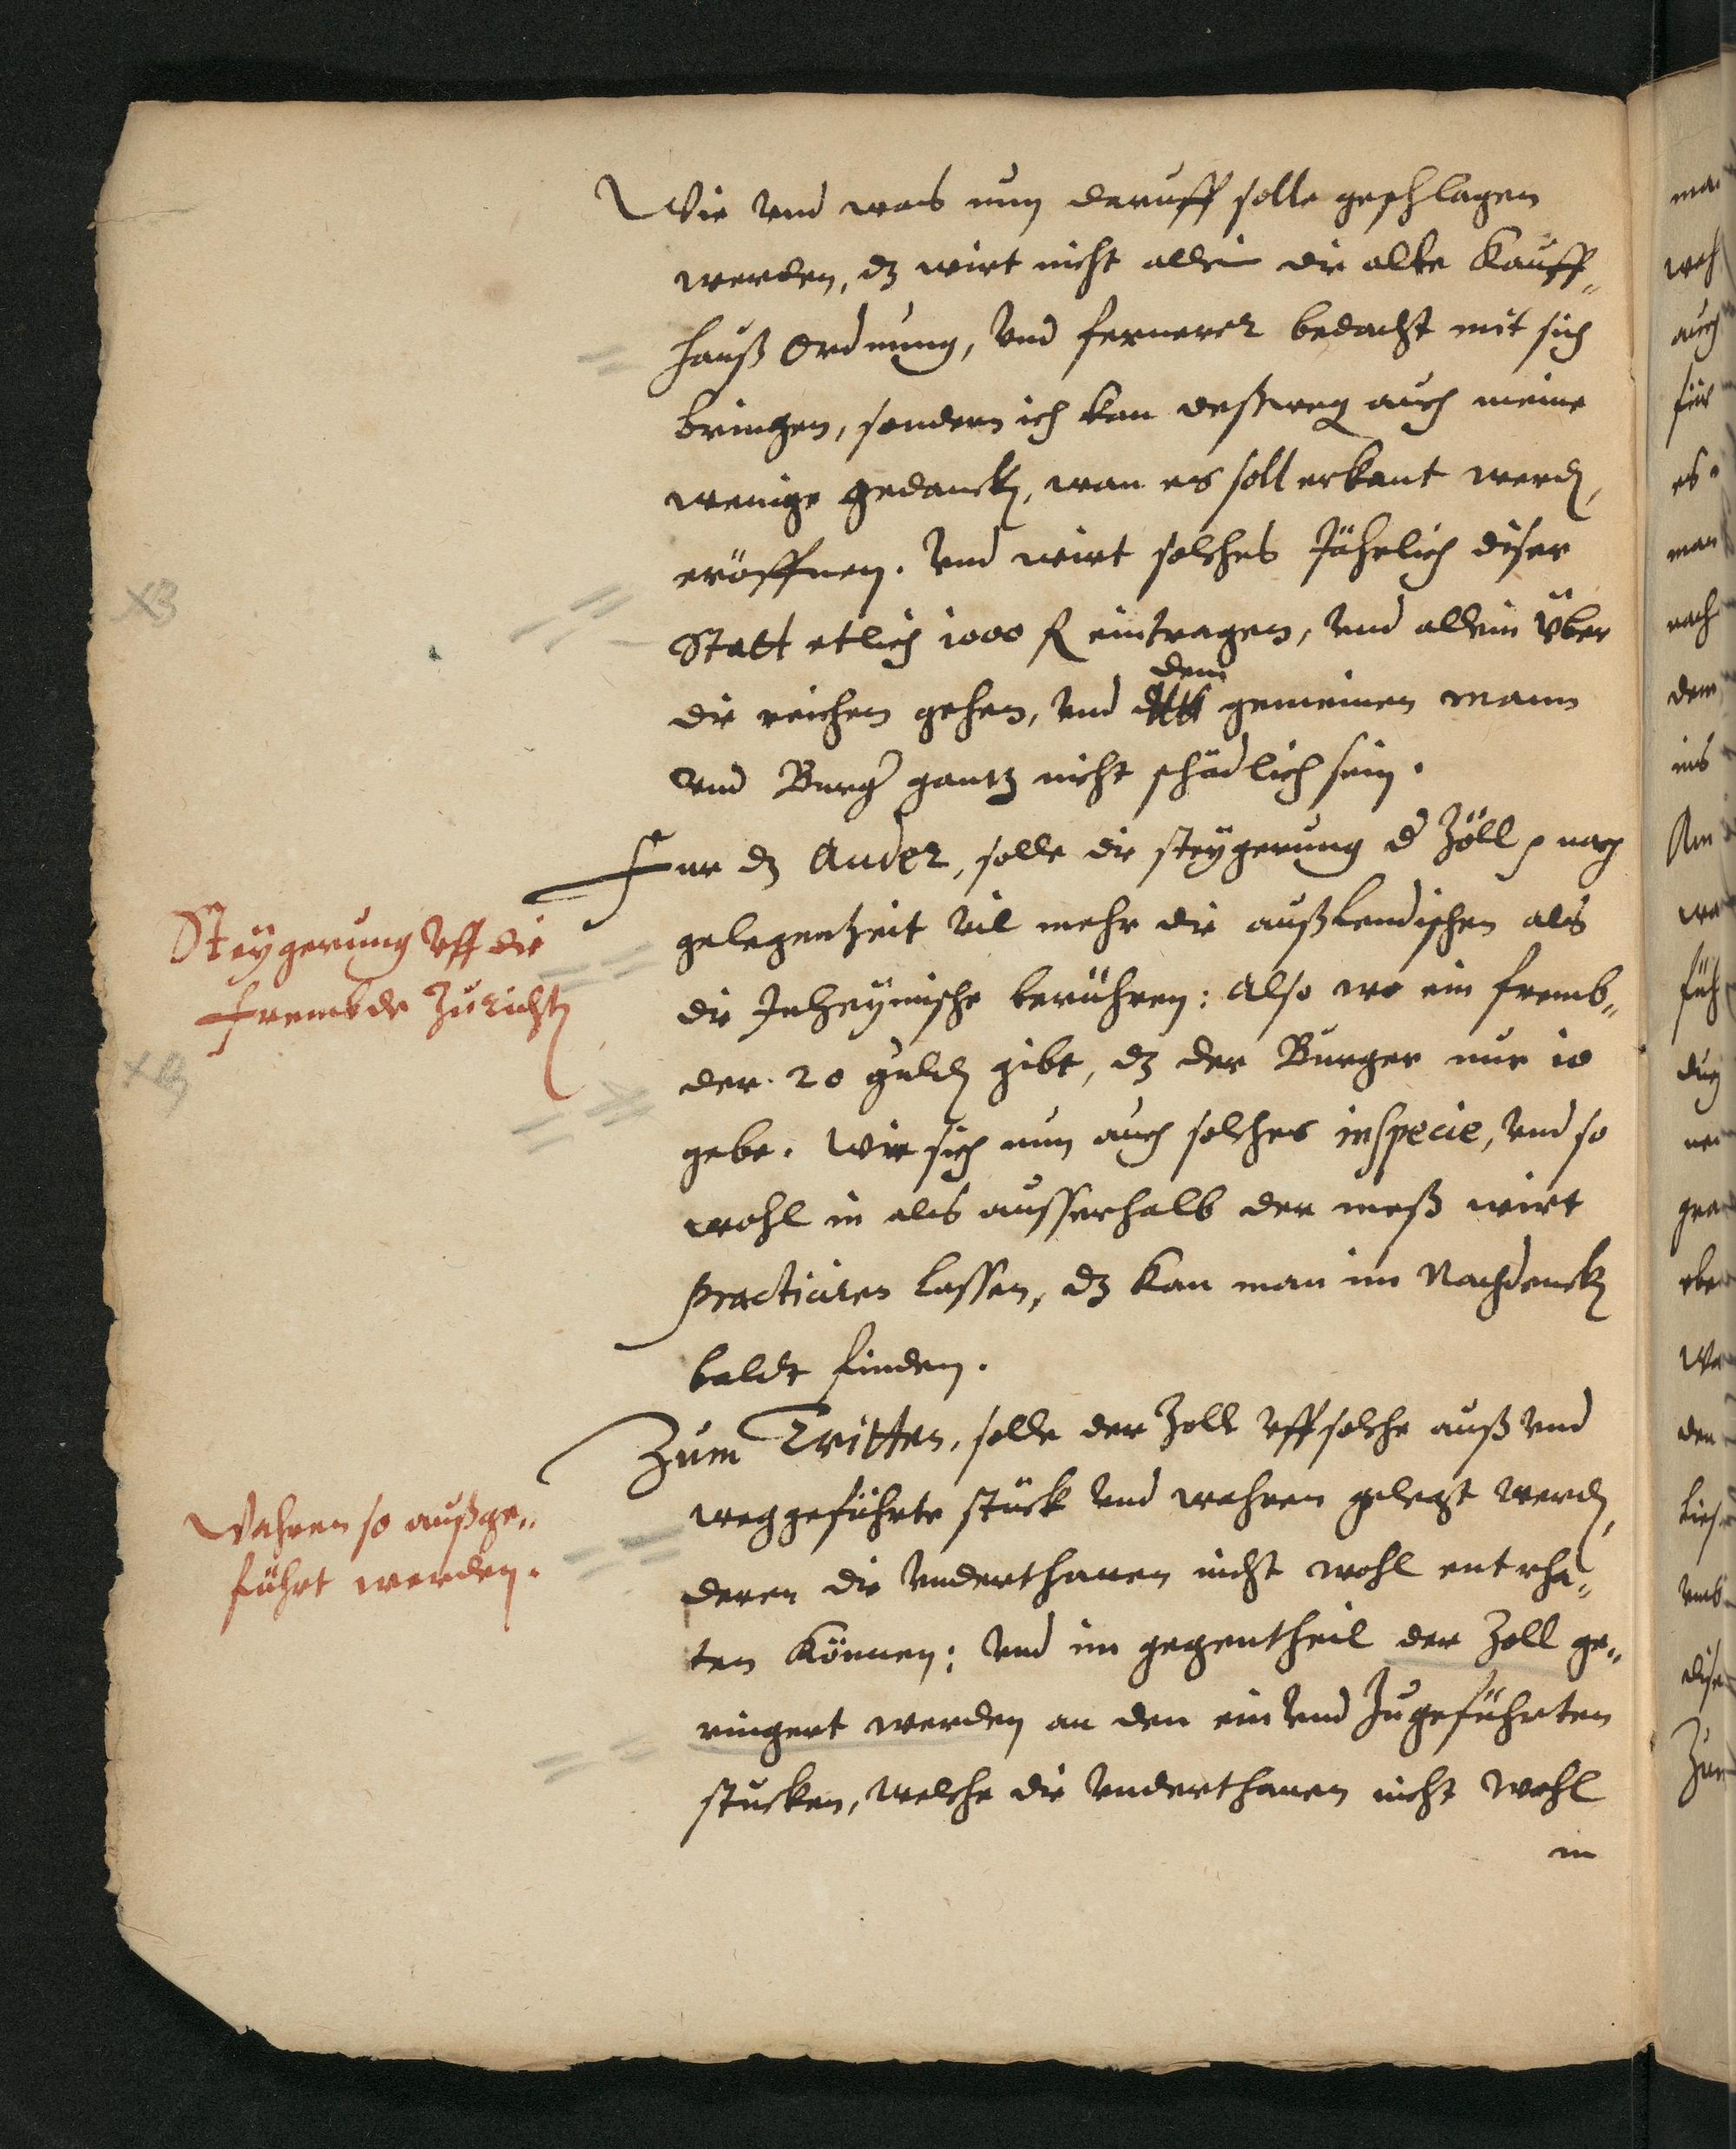 Wie vnd was nun daruff solle geschlagen
werden, dz wirt nicht allein die alte Kauff„
hauß Ordnung, vnd fernerer bedacht mit sich
bringen, sondern ich kan deßweg auch meine
wenige gedanckh, wan es soll erkant werdh,
eröffnen. Vnd wirt solches Jährlich diser
Statt etlich 1000 fl eintragen, vnd allein über
dem
die reichen gehen, vnd gemeinen mann
vnd Burger gantz nicht schädlich sein.
Fur dz Ander, solle die steygerung der Zöll nach
Steygerung vff die
frembde Zurichth
gelegenheit vil mehr die außlendischen als
die Inheymische berühren: Also wo ein fremb„
der 20 guldh gibt, dz der Burger nur 10
gebe. Wie sich nun auch solches in specie, vnd so
wohl in als ausserhalb der meß wirt
practiciren lassen, dz kan man im Nachdenckh
baldt finden.
Zum Dritten, solle der Zoll vff solche auß vnd
Wahren so außge„
führt werden.
weggeführte stück vnd wahren gelegt werdh,
deren die vnderthanen nicht wohl entrha„
ten können; vnd im gegentheil der Zoll ge„
ringert werden an den ein vnd zugeführten
stucken, welche die vnderthanen nicht wohl
in